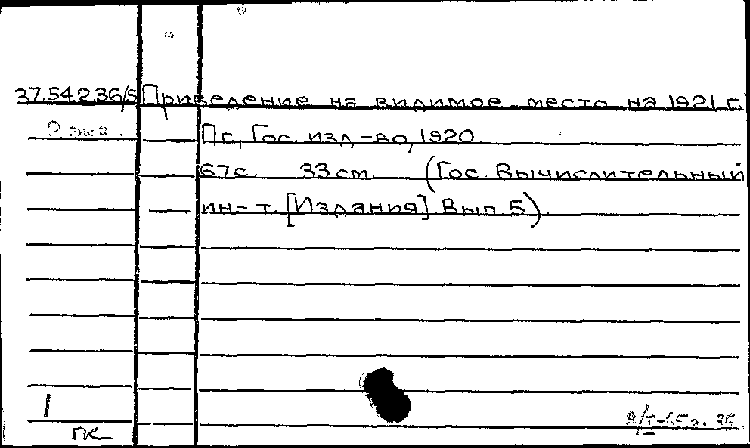 37.54.236/5 Приведение на видимое место на 1921 г.
2 экз. Пг., Гос. изд-во, 1920.
67с. 33см. (Гос. Вычислительный
ин-т. [Издания] Вып. 5).
1
ПК